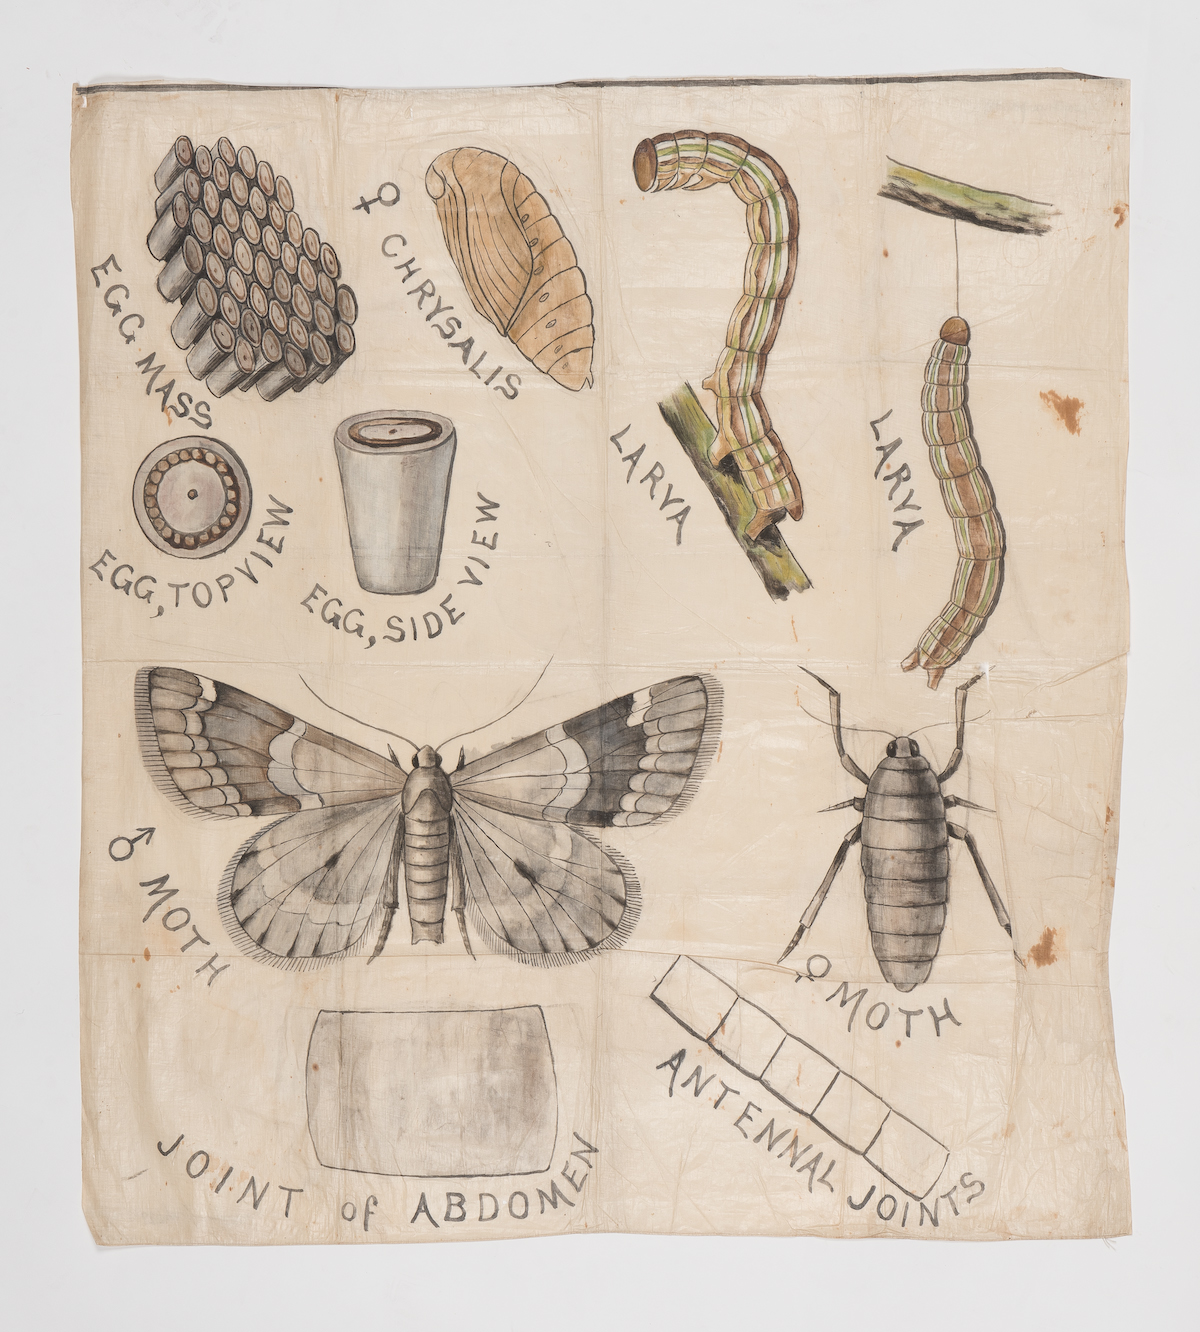 EGG MASS
♀ CHRYSALIS
LARVA
LARVA
EGG, TOP VIEW
EGG, SIDE VIEW
♂ MOTH
♀ MOTH
JOINT of ABDOMEN
ANTENNAL JOINTS